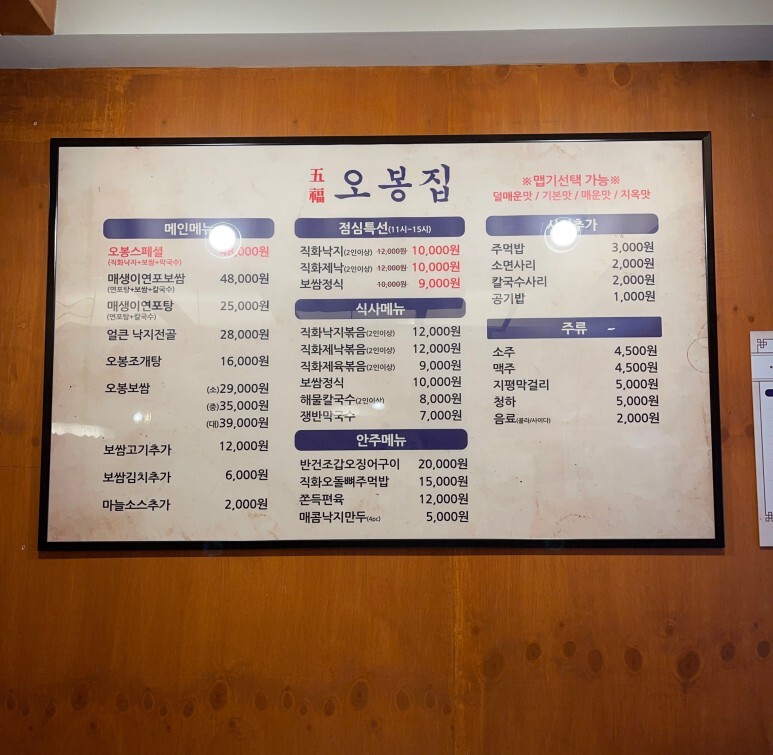 五福 오봉집
※맵기선택 가능※
덜매운맛 / 기본맛 / 매운맛 / 지옥맛
메인메뉴
오봉스페셜
(직화낙지+보쌈+막국수)
매생이연포보쌈 48,000원
(연포탕+보쌈+칼국수)
매생이연포탕 25,000원
(연포탕+칼국수)
얼큰 낙지전골 28,000원
오봉조개탕 16,000원
오봉보쌈 (소)29,000원
(중)35,000원
(대)39,000원
보쌈고기추가 12,000원
보쌈김치추가 6,000원
마늘소스추가 2,000원
점심특선(11시~15시)
직화낙지(2인이상) 12,000원 10,000원
직화제낙(2인이상) 12,000원 10,000원
보쌈정식 10,000원 9,000원
식사메뉴
직화낙지볶음(2인이상) 12,000원
직화제낙볶음(2인이상) 12,000원
직화제육볶음(2인이상) 9,000원
보쌈정식 10,000원
해물칼국수(2인이상) 8,000원
쟁반막국수 7,000원
안주메뉴
반건조갑오징어구이 20,000원
직화오돌뼈주먹밥 15,000원
쫀득편육 12,000원
매콤낙지만두(4pc) 5,000원
추가
주먹밥 3,000원
소면사리 2,000원
칼국수사리 2,000원
공기밥 1,000원
주류
소주 4,500원
맥주 4,500원
지평막걸리 5,000원
청하 5,000원
음료(콜라/사이다) 2,000원